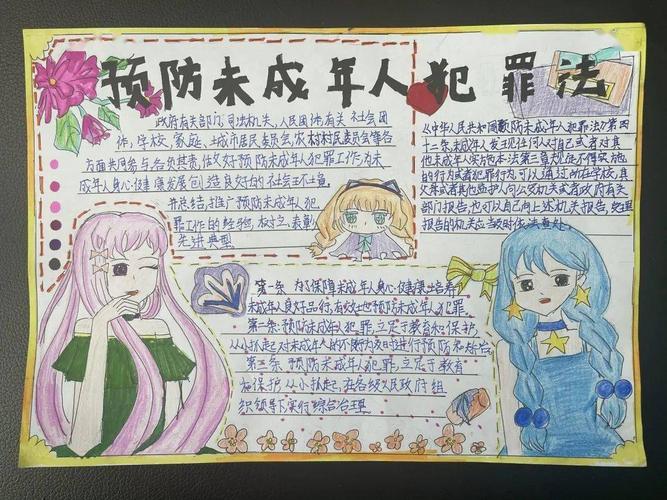 预防未成年人犯罪法
政府有关部门,司法机关、人民团体有关 社会团
体,学校、家庭、土城市居民委员会,农村村民委员会等各
方面共同参与,各负其责,做好预防未成年人犯罪工作,为未
成年人身心健康发展创造良好的社会环境。
并总结、推广预防未成年人犯
罪工作的经验,树立、表彰
先进典型
《中华人民共和国预防未成年人犯罪法》第四
十二条未成年人发现任何人对自己或者对其
他未成年人实施本法第三章规定不得实施
的行为或者犯罪行为,可以通过所在学校,其
父母或者其他监护人向公安机关或者政府有关
部门报告,也可以自己向上述机关报告,受理
报告的机关应当及时依法查处。
第一条 为了保障未成年人身心健康,培养
未成年良好品行,有效地预防未成年人犯罪
第二条预防未成年人犯罪,立足于教育和保护,
从小抓起对未成年人的不良行为及时进行预防和矫治
第三条 预防未成年人犯罪,立足于教育
和保护 从小抓起,在各级人民政府组
织领导下实行综合治理